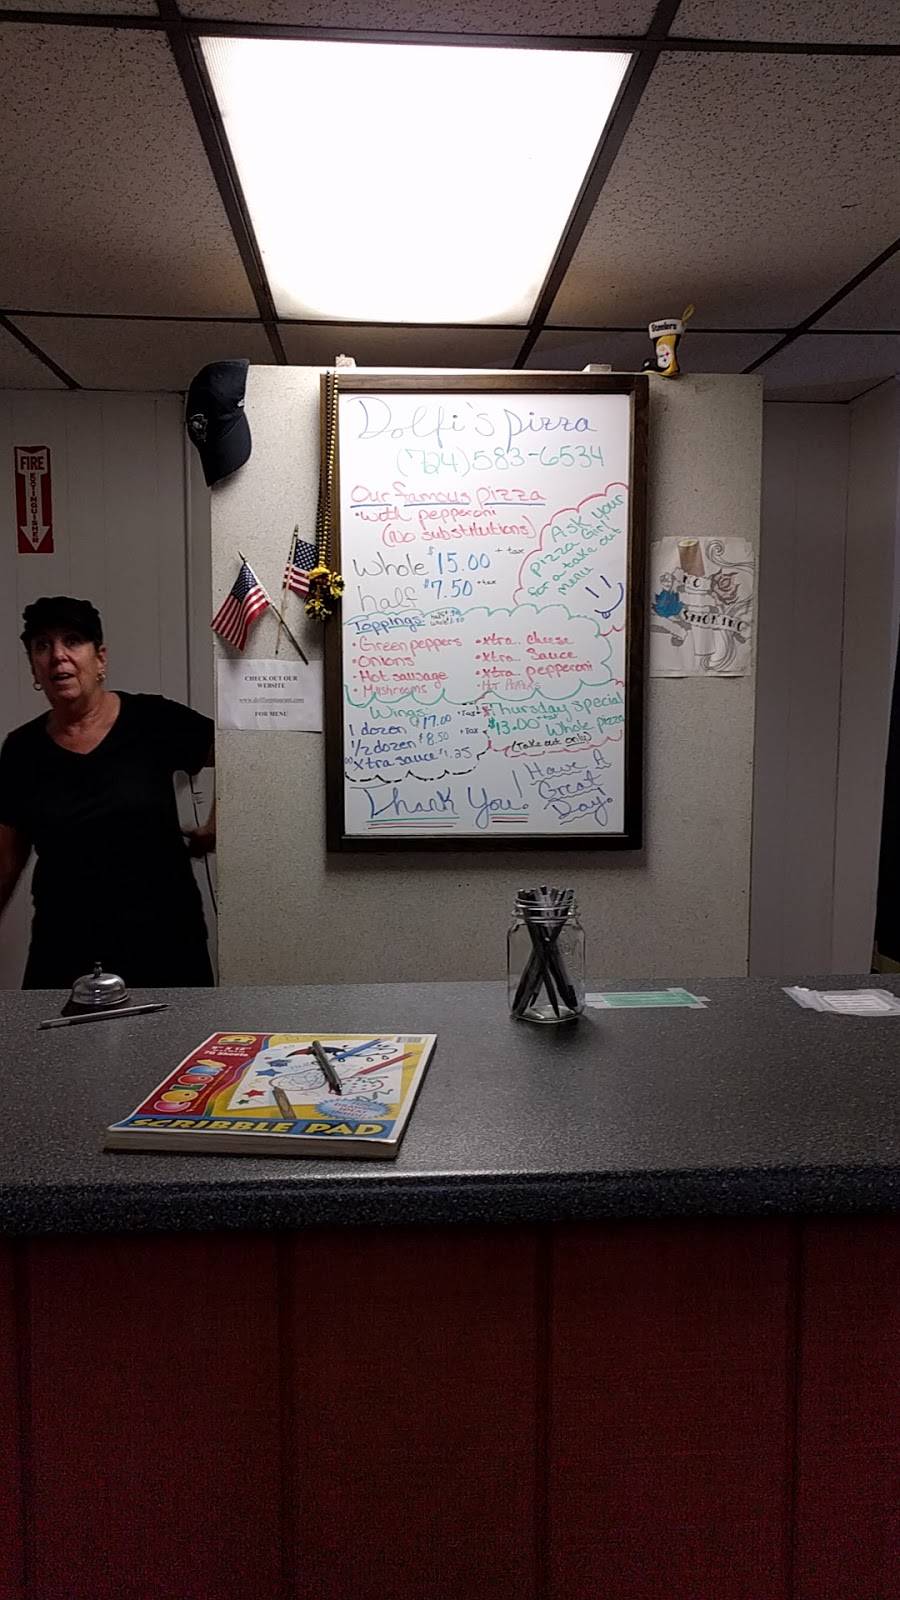 Steelers
FIRE
EXTINGUISHER
Dolfi's pizza
(724)583-6534
Our famous pizza
•With pepperoni
(No substitutions)
Whole $15.00 + tax
half $7.50 +tax
Ask your
pizza Girl
for a take out
menu
Toppings:
•Green peppers
•Onions
•Hot sausage
•Mushrooms
•xtra. Cheese
•xtra. Sauce
•xtra pepperoni
•Hot Peppers
Wings:
1 dozen $17.00 +Tax
1/2 dozen $8.50 +Tax
xtra sauce $1.25
Thursday special
$13.00 +tax Whole pizza
(Take out only)
Thank You!
Have A
Great
Day!
NO
SMOKING
CHECK OUT OUR
WEBSITE
FOR MENU
9" X 12"
70 Sheets
COLOR
SCRIBBLE PAD